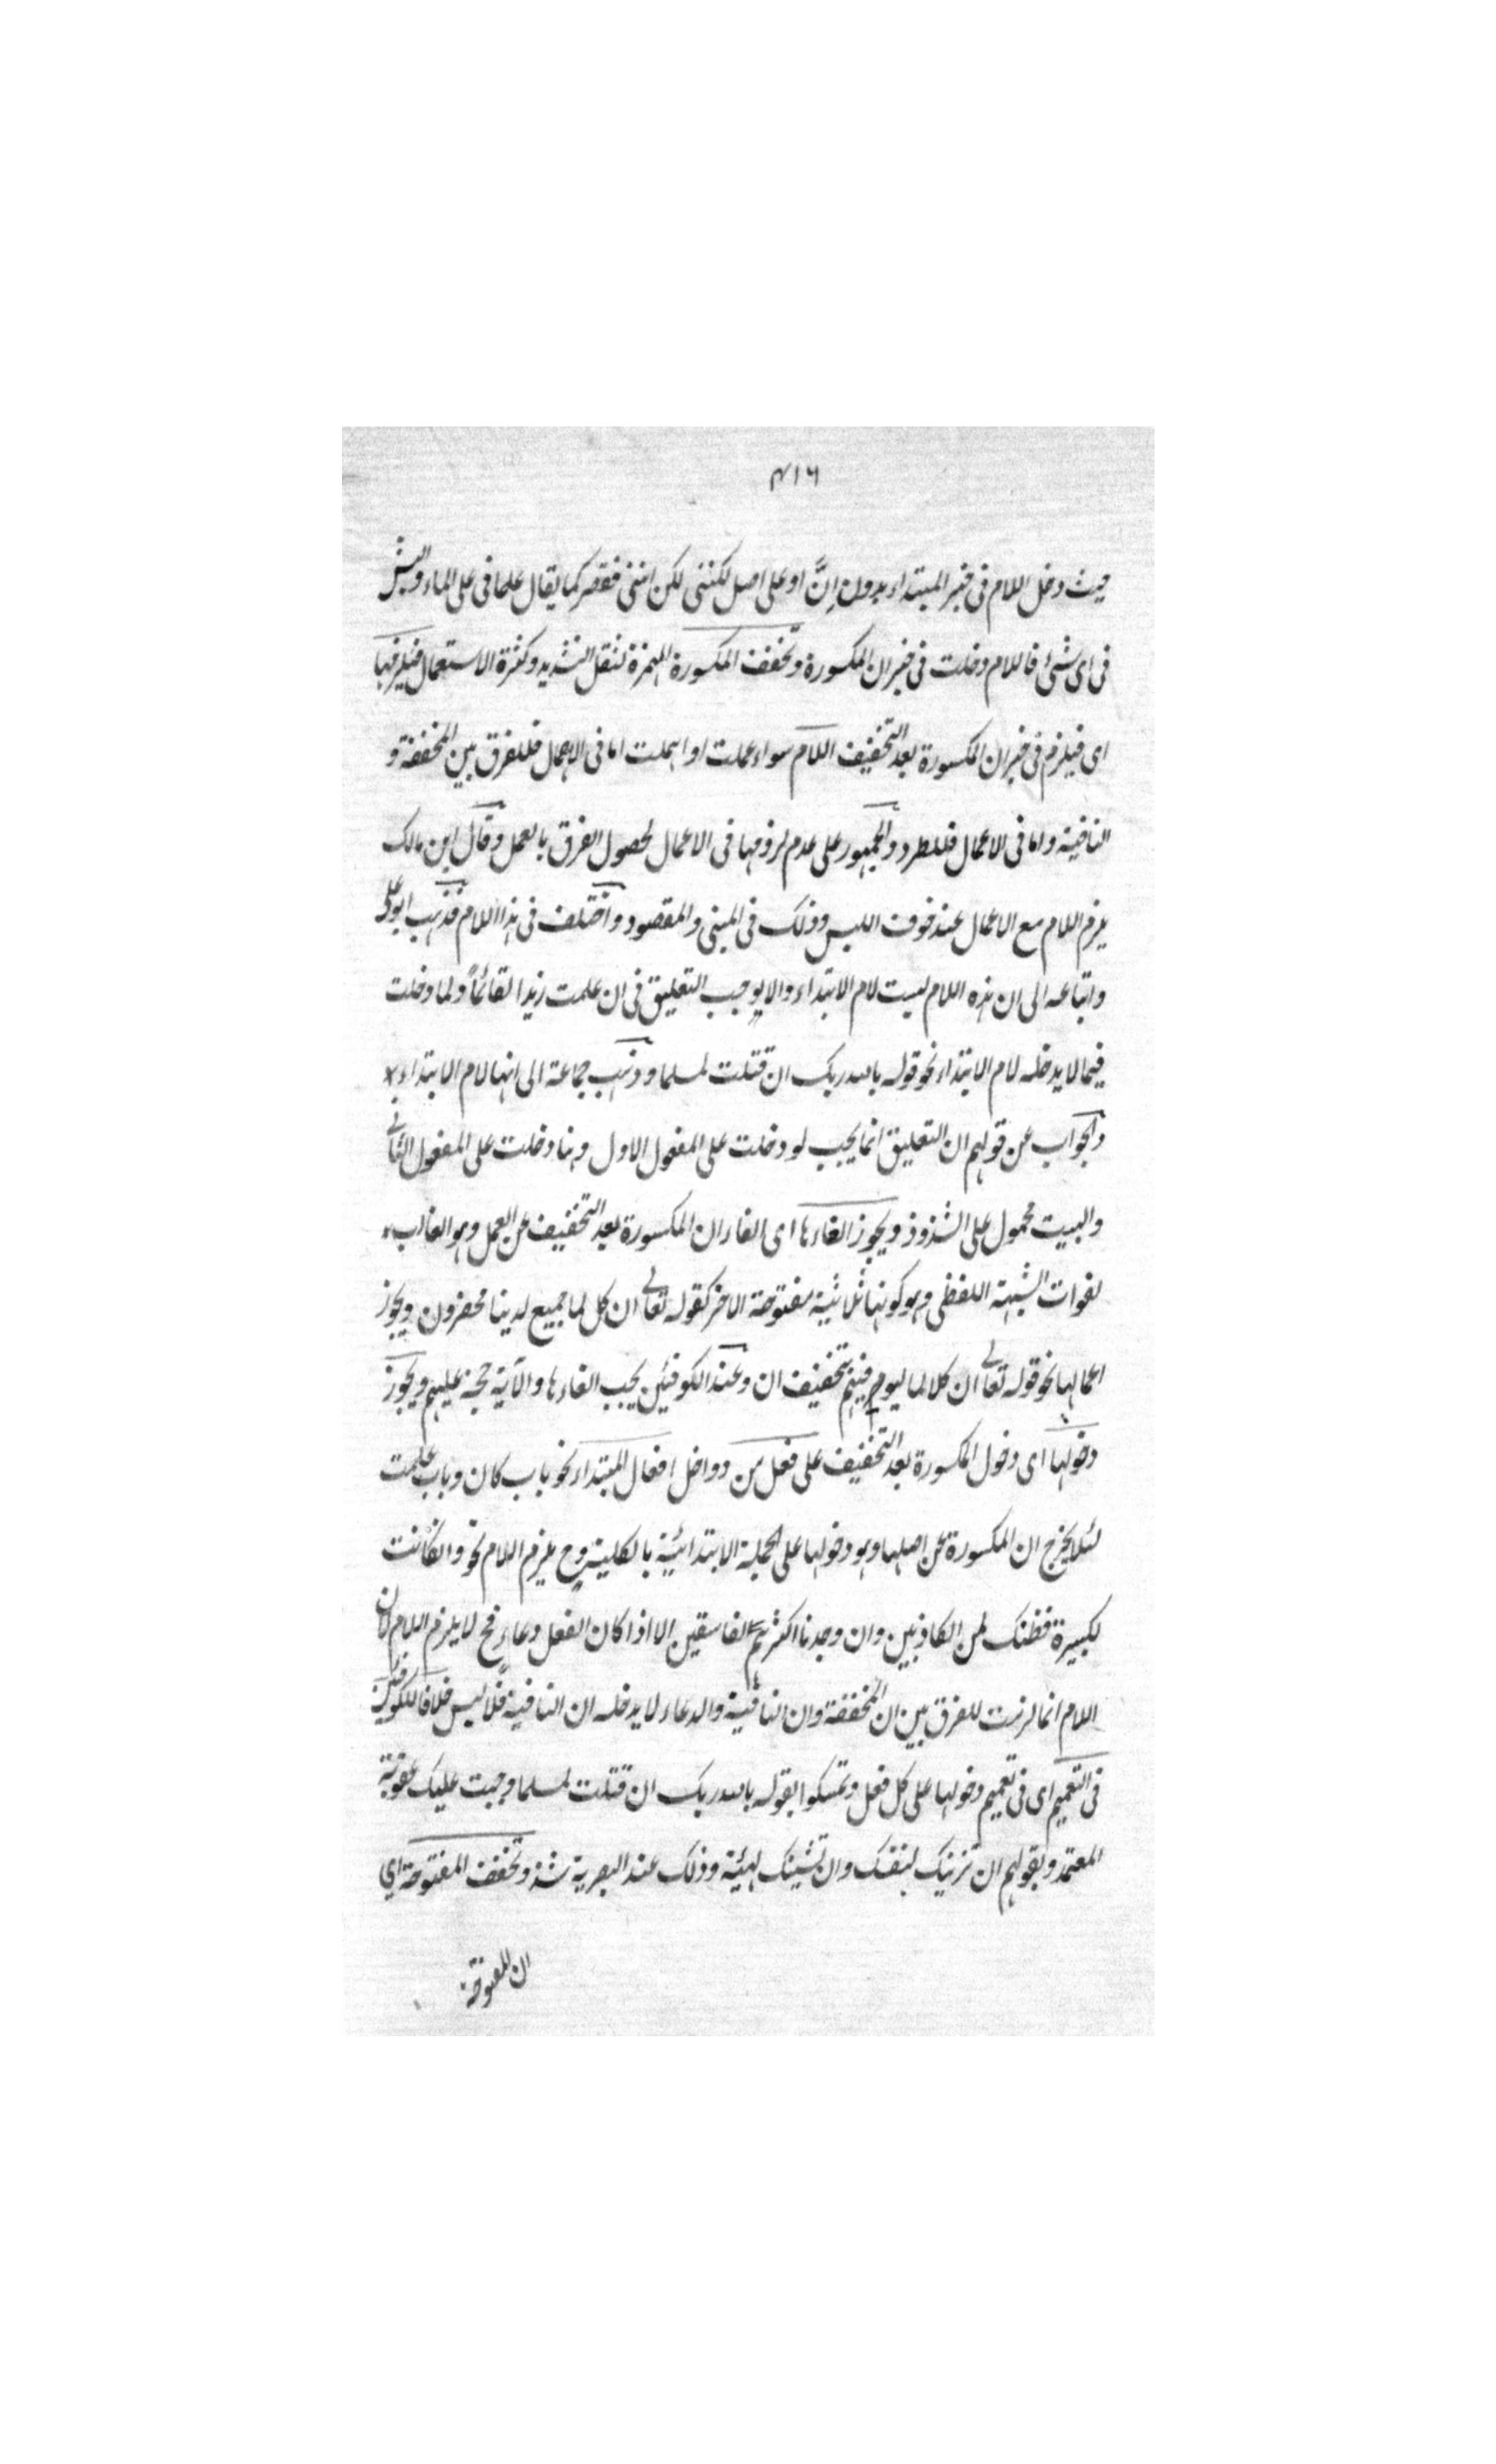 ٤١٦
حيث دخل اللام في خبر المبتداء بدون اِنَّ او على اصل لكننى لكن اننى فقصر كما يقال علما فى على الماء و ايش
فى اى شئ فاللام دخلت فى خبر ان المكسورة وتخفف المكسورة الهمزة لثقل التشديد وكثرة الاستعمال فيلزمها
اى فيلزم فى خبر ان المكسورة بعد التخفيف اللام سواء عملت او اهملت اما فى الاهمال فللفرق بين المخففة و
النافية واما فى الاعمال فللطرد والجمهور على عدم لزومها فى الاعمال لحصول الفرق بالعمل وقال ابن مالك
يلزم اللام مع الاعمال عند خوف اللبس وذلك فى المبنى والمقصود واختلف فى هذا اللام فذهب ابو على
واتباعه الى ان هذه اللام ليست لام الابتداء والا يوجب التعليق فى ان علمت زيدا لقائماً ولما دخلت
فيما لا يدخله لام الابتداء نحو قوله بالله ربك ان قتلت لمسلما وذهب جماعة الى انها لام الابتداء
والجواب عن قولهم ان التعليق انما يجب لو دخلت على المفعول الاول وهنا دخلت على المفعول الثانى
والبيت محمول على الشذوذ ويجوز الغاءها اى الغاء ان المكسورة بعد التخفيف عن العمل وهو الغالب
لفوات الشبهة اللفظى وهو كونها ثلاثية مفتوحة الاخر كقوله تعالى ان كل لما جميع لدينا محضرون ويجوز
اعمالها نحو قوله تعالى ان كلا لما ليوفينهم بتخفيف ان وعند الكوفيين يجب الغاءها والآية حجة عليهم ويجوز
دخولها اى دخول المكسورة بعد التخفيف على فعل من دواخل افعال المبتداء نحو باب كان وباب علمت
لئلا يخرج ان المكسورة عن اصلها وهو دخولها على الجملة الابتدائية بالكلية وح يلزم اللام نحو وان كانت
لكبيرة نظنك لمن الكاذبين وان وجدنا اكثرهم لفاسقين الا اذا كان الفعل دعاء فح لا يلزم اللام لان
اللام انما لزمت للفرق بين ان المخففة وان النافية والدعاء لا يدخله ان النافية فلا لبس خلافا للكوفيين
فى التعميم اى فى تعميم دخولها على كل فعل وتمسكوا بقوله بالله ربك ان قتلت لمسلما وجبت عليك عقوبة
المعتمد وبقولهم ان تزينك لنفسك وان تشينك لهيئة وذلك عند البصرية شذ وتخفف المفتوحة اي
ان المفتوحة